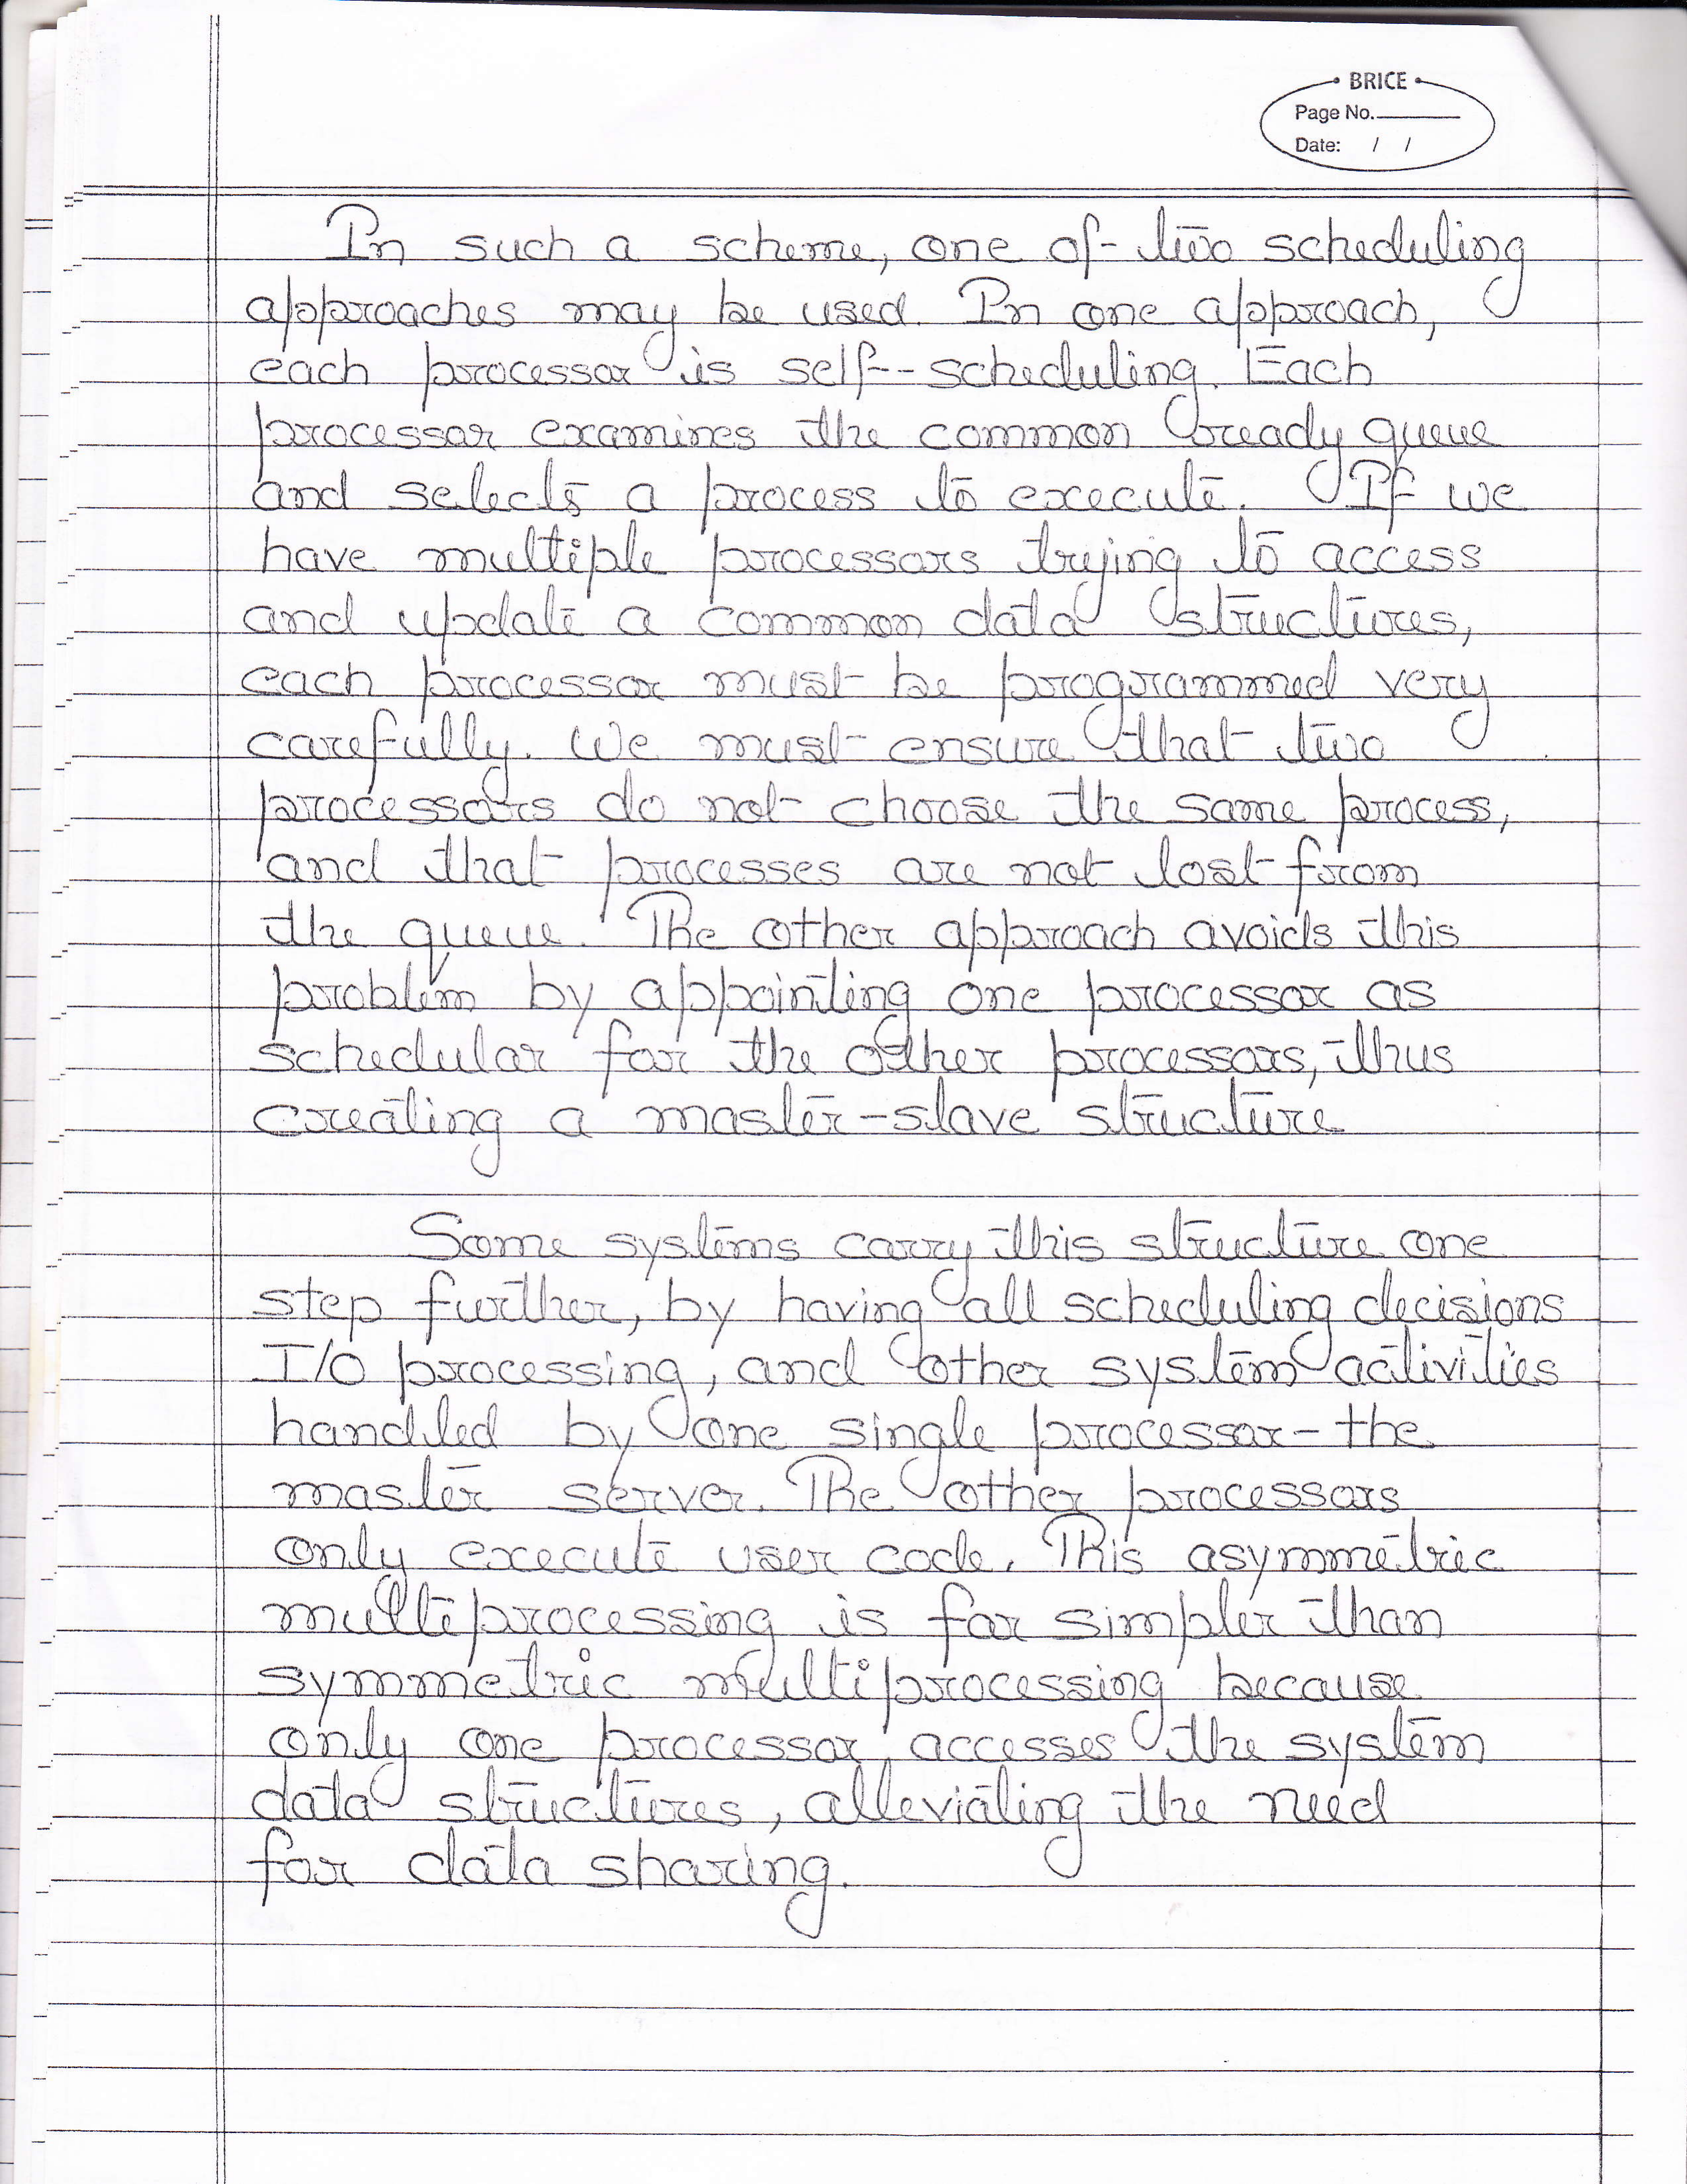 BRICE
Page No.
Date: / /
In such a scheme, one of two scheduling
approaches may be used. In one approach,
each processor is self-scheduling. Each
processor examines the common ready queue
and selects a process to execute. If we
have multiple processors trying to access
and update a common data structures,
each processor must be programmed very
carefully. We must ensure that two
processors do not choose the same process,
and that processes are not lost from
the queue. The other approach avoids this
problem by appointing one processor as
schedular for the other processors, thus
creating a master-slave structure
Some systems carry this structure one
step further, by having all scheduling decisions
I/O processing, and other system activities
handled by one single processor - the
master server. The other processors
only execute user code. This asymmetric
multiprocessing is far simpler than
symmetric multiprocessing because
only one processor accesses the system
data structures, alleviating the need
for data sharing.